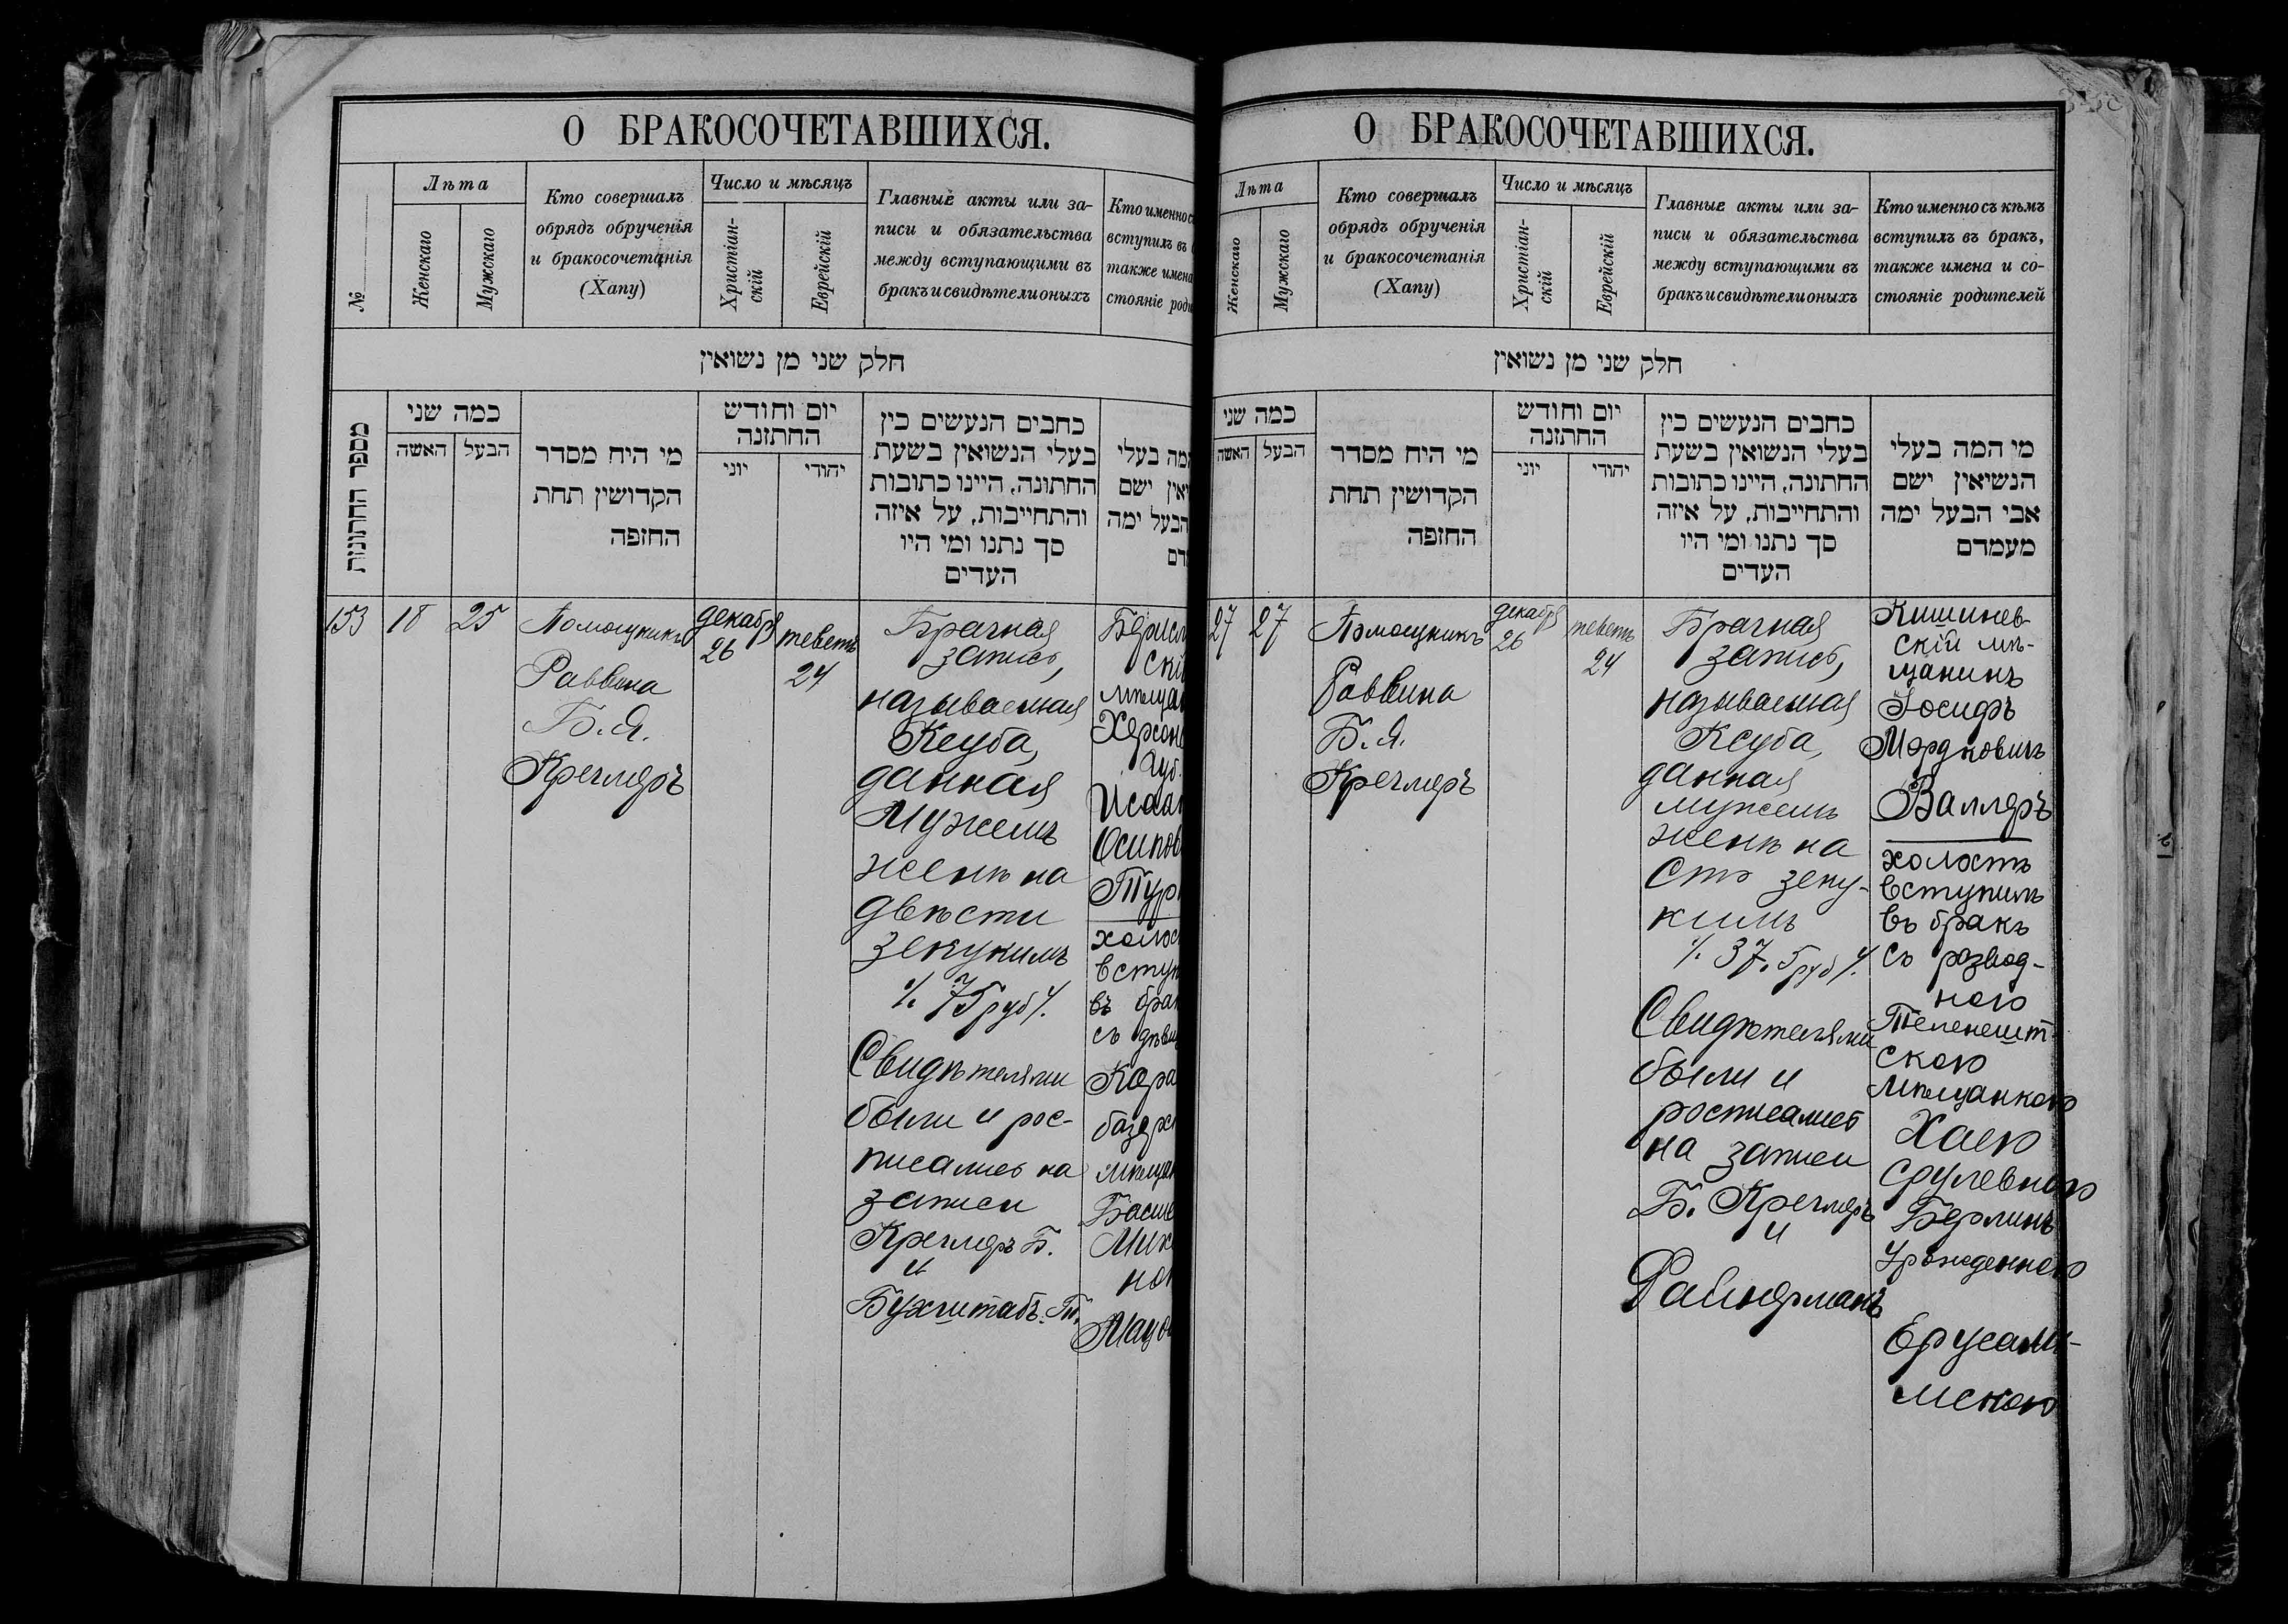 О БРАКОСОЧЕТАВШИХСЯ.
№
Лѣта
Женскаго
Мужскаго
Кто совершалъ
обрядъ обрученія
и бракосочетанія
(Хапу)
Число и мѣсяцъ
Христіан-
скій
Еврейскій
Главные акты или за-
писи и обязательства
между вступающими въ
бракъ и свидѣтели оныхъ
Кто именно съ
вступилъ въ
также имена
стояніе роди
חלק שני מן נשואין
מספר החתונות
כמה שני
האשה
הבעל
מי היח מסדר
הקדושין תחת
החזפה
יום וחודש
החתזנה
יוני
יהודי
כחבים הנעשים כין
בעלי הנשואין בשעת
החתונה, היינו כתובות
והתחייבות, על איזה
סך נתנו ומי היו
העדים
המה בעלי
ואין ישם
הבעל ימה
153
18
25
Помощникъ
Раввина
Б. Я.
Кречмеръ
декабр
26
теветъ
24
Брачная
запись,
называемая
Ксуба,
данная
Мужемъ
женѣ на
двѣсти
зекукимъ
٪ 75 руб ٪
Свидѣтелями
были и рос-
писались на
записи
Кречмеръ Б.
и
Бухштабъ. Т.
Берисл
скі
мѣщан
Херсонс
Губ.
Исаак
Осипов
Тур
холос
вступ
въ бра
съ дѣви
Кара
базарс
мѣщан
Басше
Мих
ною
О БРАКОСОЧЕТАВШИХСЯ.
Лѣта
Женскаго
Мужскаго
Кто совершалъ
обрядъ обрученія
и бракосочетанія
(Хапу)
Число и мѣсяцъ
Христіан-
скій
Еврейскій
Главные акты или за-
писи и обязательства
между вступающими въ
бракъ и свидѣтели оныхъ
Кто именно съ кѣмъ
вступилъ въ бракъ,
также имена и со-
стояніе родителей
חלק שני מן נשואין
כמה שני
האשה
הבעל
מי היח מסדר
הקדושין תחת
החזפה
יום וחודש
החתזנה
יוני
יהודי
כחבים הנעשים כין
בעלי הנשואין בשעת
החתונה, היינו כתובות
והתחייבות, על איזה
סך נתנו ומי היו
העדים
מי המה בעלי
הנשיאין ישם
אבי הבעל ימה
מעמדם
27
27
Помощникъ
Раввина
Б. Я.
Кречмеръ
декабр
26
теветъ
24
Брачная
запись,
называемая
Ксуба,
данная
мужемъ
женѣ на
Сто зеку-
кимъ
٪ 37.5 руб ٪
Свидѣтелями
были и
росписались
на записи
Б. Кречмеръ
и
Файнерманъ
Кишинев-
скій мѣ-
щанинъ
Іосифъ
Мордковичъ
Валлеръ
холостъ
вступилъ
въ бракъ
съ развод-
ною
Теленешт-
скою
мѣщанкою
Хаею
Срулевною
Берлинъ
урожденною
Ерусали-
мскою